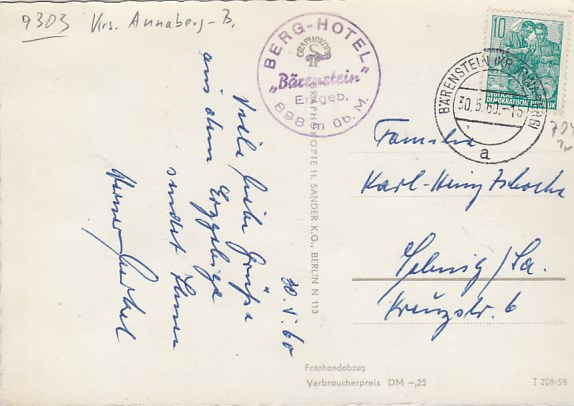 9303 Krs. Annaberg-B.
BERG-HOTEL
GRAPHOKOPIE
H S
"Bärenstein"
Erzgeb.
898 m üb. M.
10
DEUTSCHE
DEMOKRATISCHE REPUBLIK
BÄRENSTEIN (KR ANNABERG)
30.5.60.-15
a
Viele liebe Grüße
aus dem Erzgebirge
sendet Ihnen
Werner
30.V.60
GRAPHOKOPIE H. SANDER K.G., BERLIN N 113
Familie
Karl-Heinz
/Sa.
Kreuzstr. 6
Fotohandabzug
Verbraucherpreis DM -,25
T 208/59